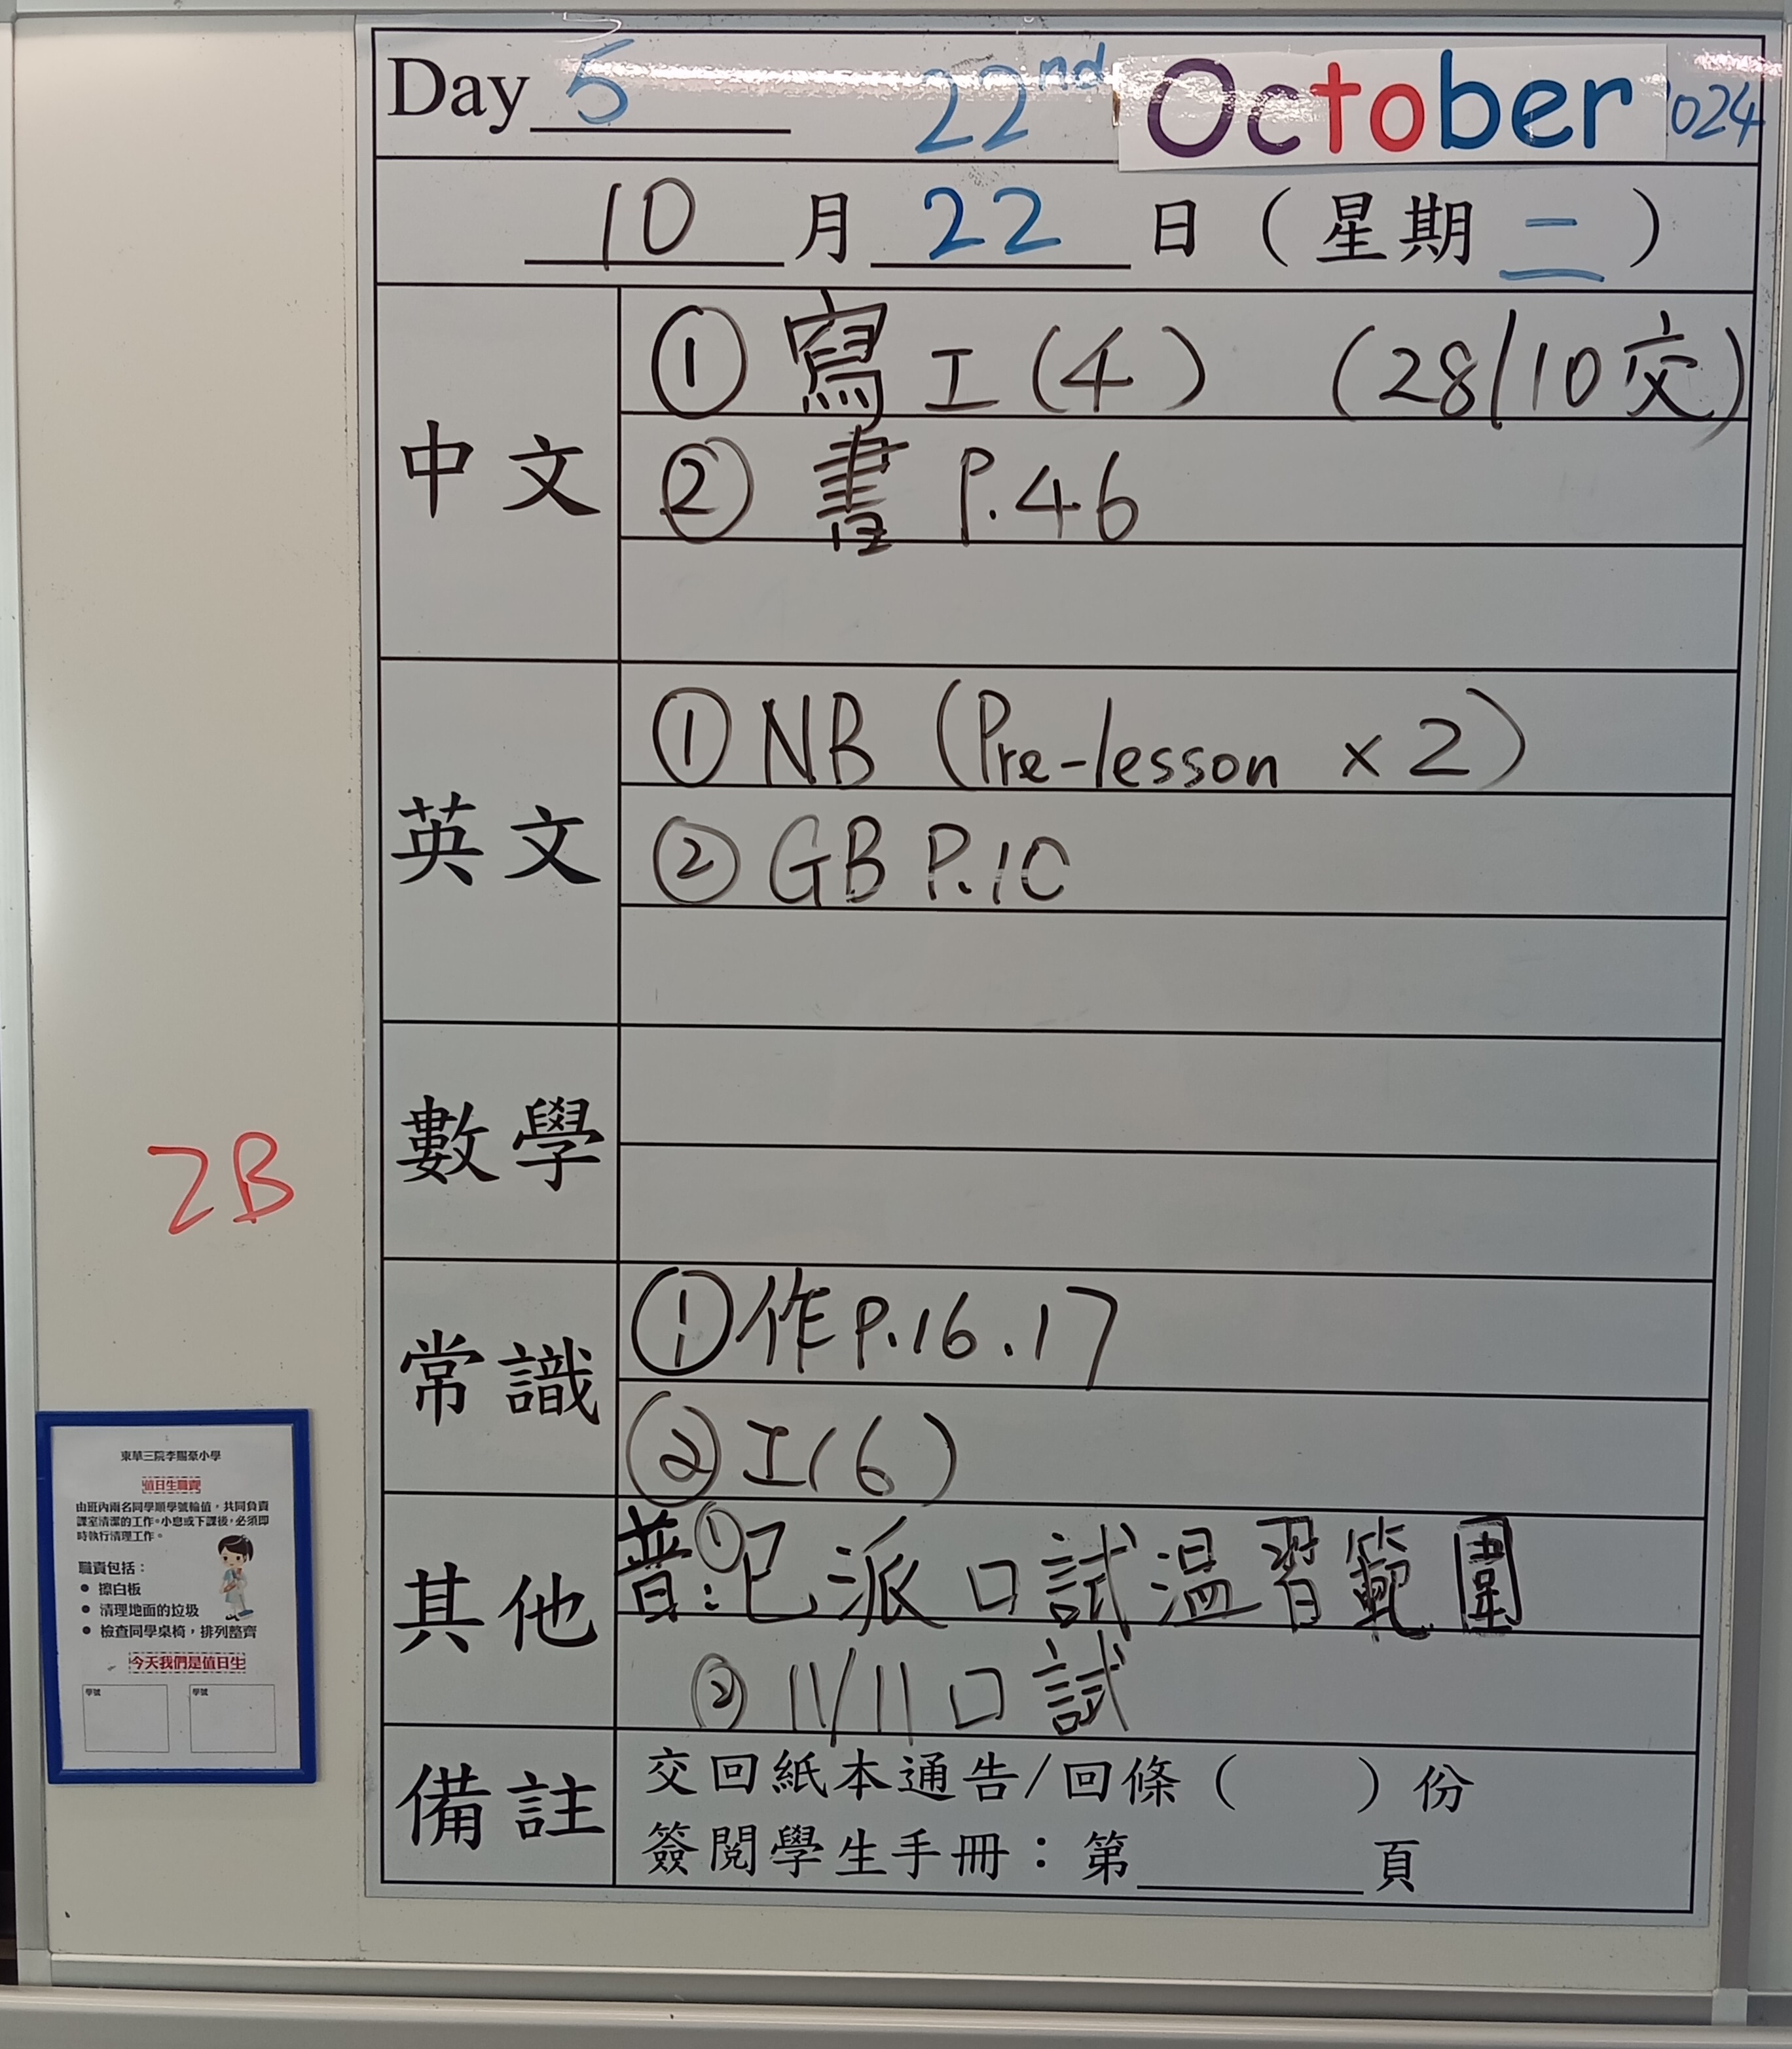 Day 5 22nd October 2024
10 月 22 日 ( 星期 二 )
中文
① 寫 工 (4) (28/10 交)
② 書 P.46
英文
① NB (Pre-lesson × 2)
② GB P.10
數學
常識
① 作 P.16.17
② 工(6)
其他
普: ① 已派口試温習範圍
② 11/11 口試
備註
交回紙本通告/回條 ( ) 份
簽閱學生手冊：第______頁
2B
東華三院李賜豪小學
值日生職責
由班內兩名同學順學號輪值，共同負責
課室清潔的工作。小息或下課後，必須即
時執行清理工作。
職責包括：
● 擦白板
● 清理地面的垃圾
● 檢查同學桌椅，排列整齊
今天我們是值日生
學號 學號